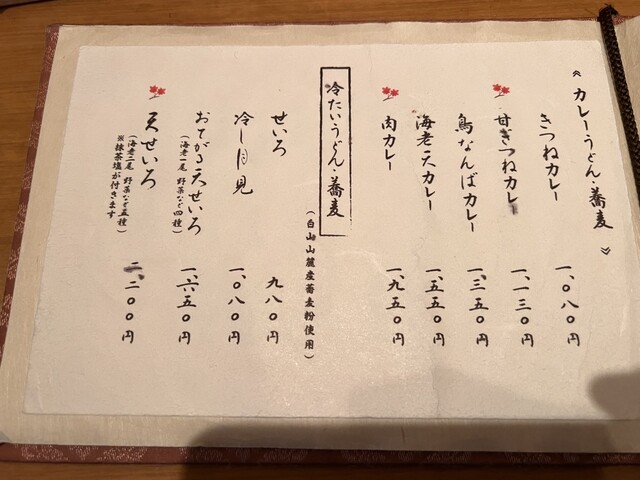 《カレーうどん・蕎麦》
きつねカレー 一、〇八〇円
甘ぎつねカレー 一、一三〇円
鳥なんばカレー 一、三五〇円
海老天カレー 一、五五〇円
肉カレー 一、九五〇円
冷たいうどん・蕎麦
(白山山麓産蕎麦粉使用)
せいろ 九八〇円
冷し月見 一、〇八〇円
おてがる天せいろ 一、六五〇円
(海老一尾 野菜など四種)
天せいろ 二、二〇〇円
(海老二尾 野菜など五種)
※抹茶塩が付きます